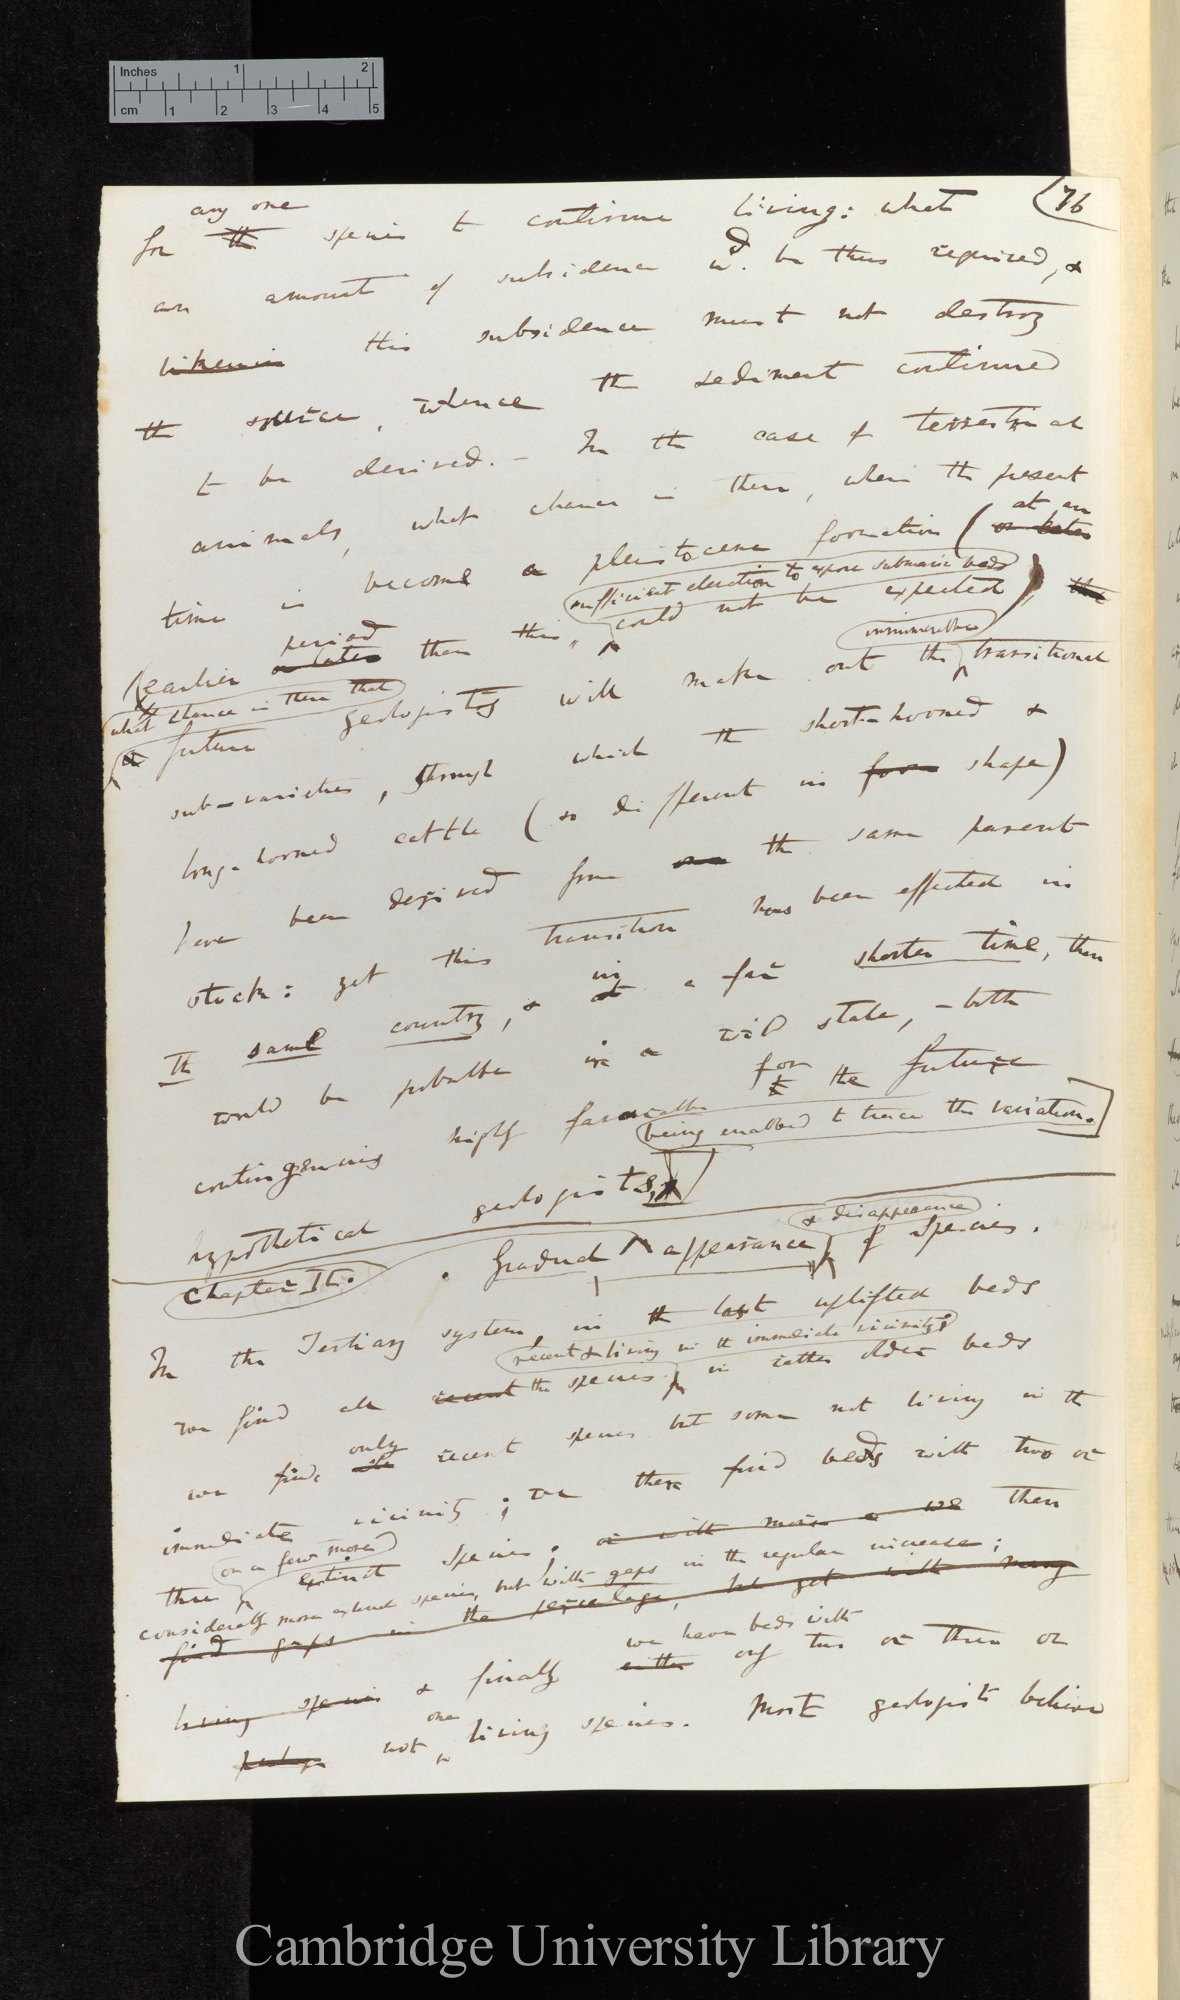 Inches 1 2
cm 1 2 3 4 5
76
any one
for th species to continue living: what
an amount of subsidence wd. be thus required, &
likewise this subsidence must not destroy
the source, whence the sediment continued
to be derived. - In the case of terrestrial
animals, what chance is there, when the present
time is become a pleistocene formation (at an
or later
sufficient elevation to expose submarine beds
(earlier period than this, could not be expected),
or later
what chance is there that innumerable
future geologists will make out the transitional
sub-varieties, through which the short-horned &
long-horned cattle (so different in form shape)
have been derived from one the same parent
stock: yet this transition has been effected in
the same country, & in a far shorter time, than
would be probable in a wild state, - both
contingencies highly favourable for the future
being enabled to trace the variation.
hypothetical geologists,
& disappearance
Chapter II. Gradual appearance of Species.
In the Tertiary system, in the last uplifted beds
recent & living in the immediate vicinity;
we find all recent the species in rather older beds
we find only recent species but some not living in the
immediate vicinity; we then find beds with two or
three or a few more extinct species. or with more we then
considerably more extinct species, but with gaps in the regular increase;
find gaps in the percentage, with many
we have beds with
living species & finally either only two or three or
perhaps not one living species. Most geologists believe
Cambridge University Library